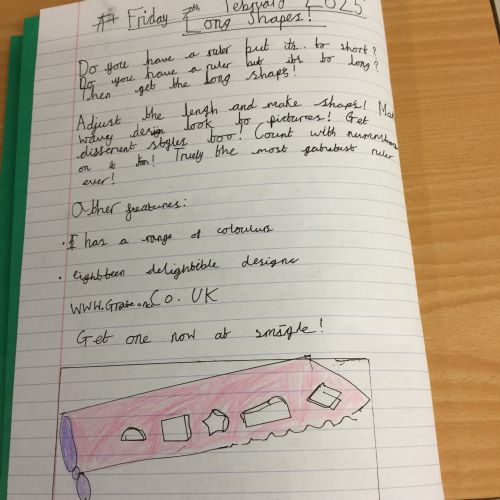 Friday 7th February 2025
Long Shapes!
Do you have a ruler but its to short?
Do you have a ruler but its to long?
Then get the long shape!
Adjust the lengh and make shaps!
wavy design look to pictures! Get
different styles too! Count with
on it too! Truely the most ruler
ever!
Other features:
• I has a range of coloulurs
• eighteen delightible designs
WWW. Co. UK
Get one now at smigle!